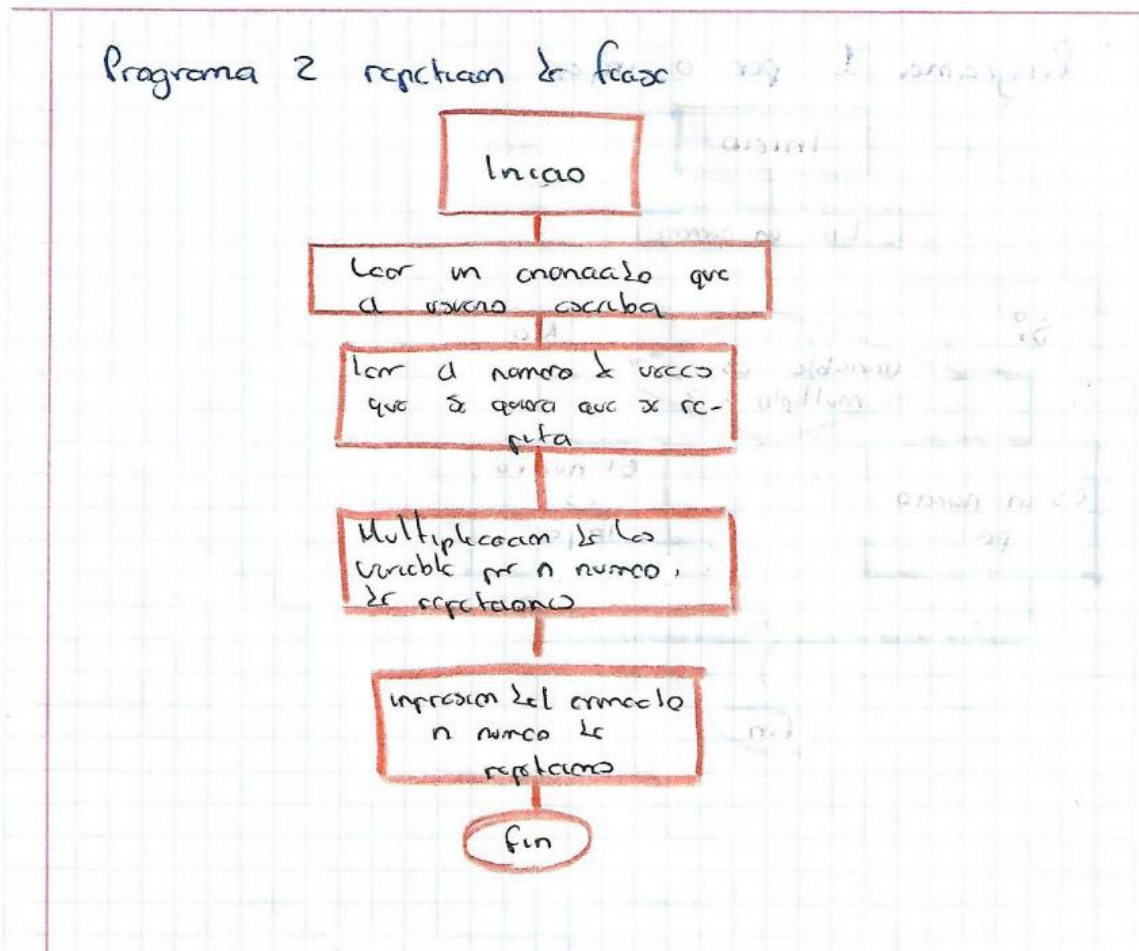 Programa 2 repeticion de frase
Inicio
Leer un enunciado que
el usuario escriba
leer el numero de veces
que se quiera que se re-
pita
Multiplicacion de la
variable por n numero,
de repeticiones
impresion del enunciado
n numero de
repeticiones
fin